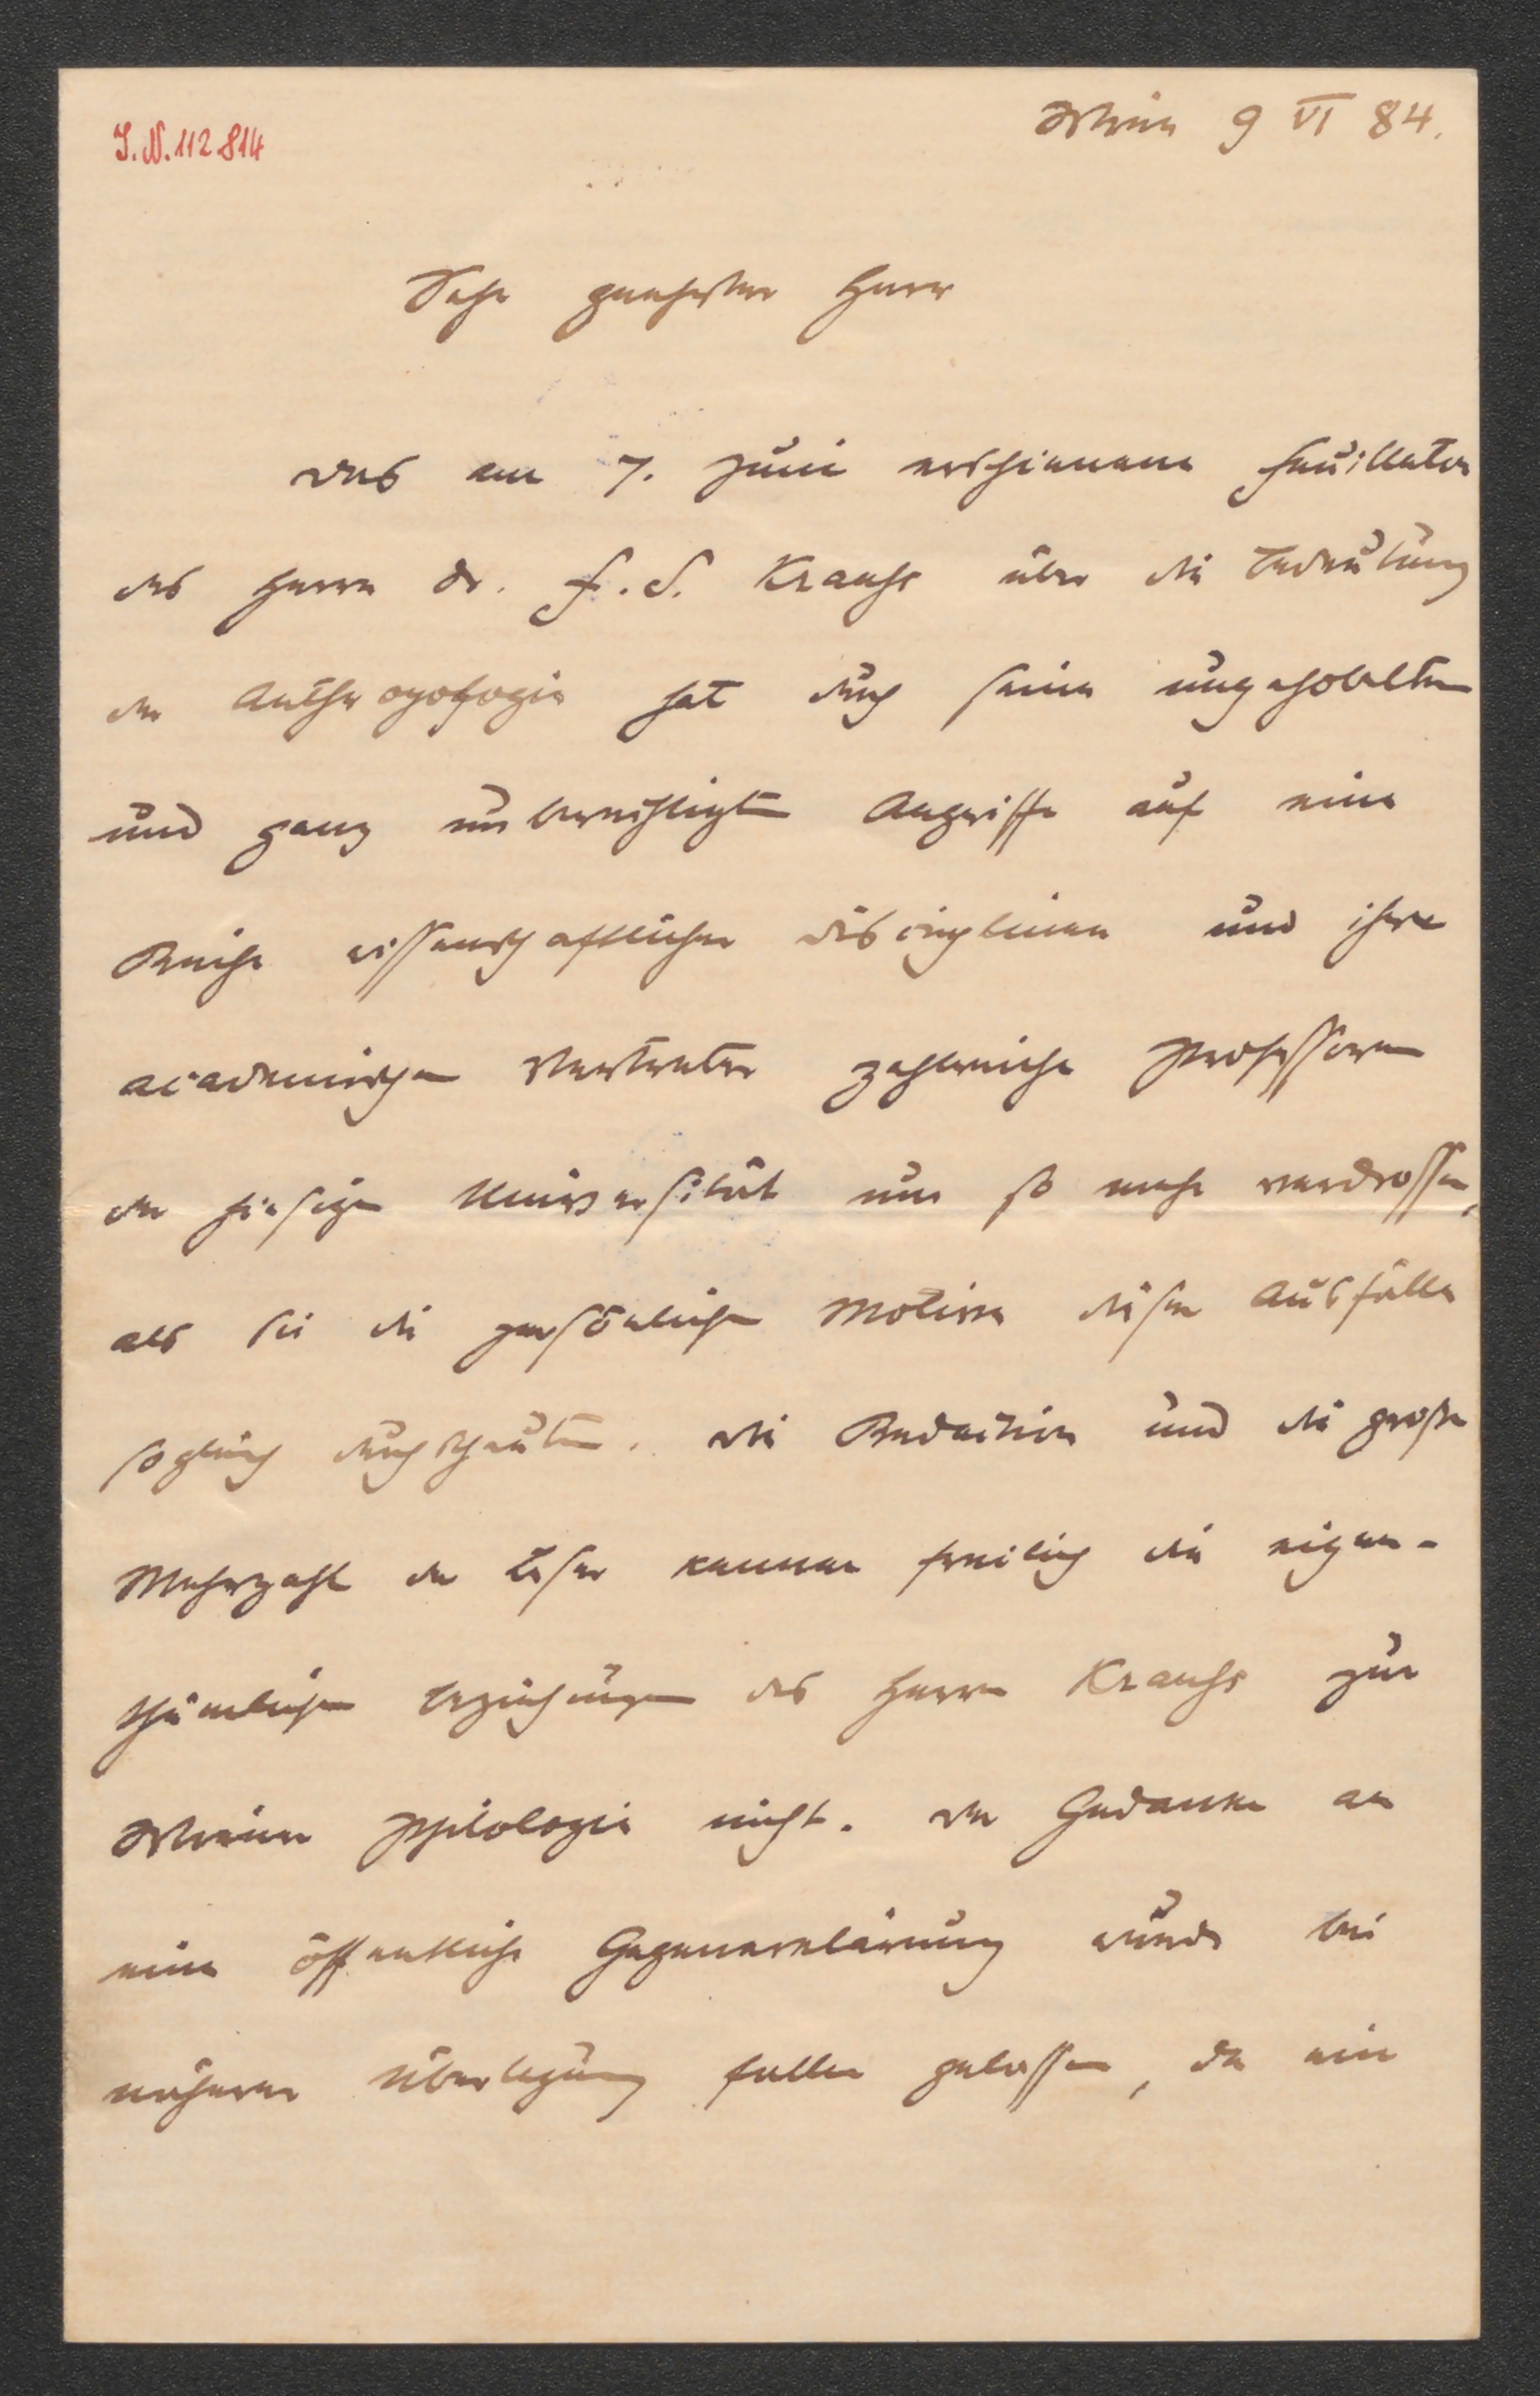 J.N. 112814
Wien 9 VI 84.
Sehr geehrter Herr
Das am 7. Juni erschienene Feuilleton
des Herrn Dr. F. S. Krauss über die Bedeutung
der Anthropologie hat durch seine ungehobelten
und ganz unberechtigten Angriffe auf eine
Reihe wissenschaftlicher Disciplinen und ihre
academischen Vertreter zahlreiche Professoren
der hiesigen Universität um so mehr verdrossen,
als sie die persönlichen Motive dieser Ausfälle
sogleich durchschauten. Die Redaction und die große
Mehrzahl der Leser kennen freilich die eigen-
thümlichen Beziehungen des Herrn Krauss zur
Wiener Philologie nicht. Der Gedanke an
eine öffentliche Gegenerklärung wurde bei
näherer Überlegung fallen gelassen, da ein